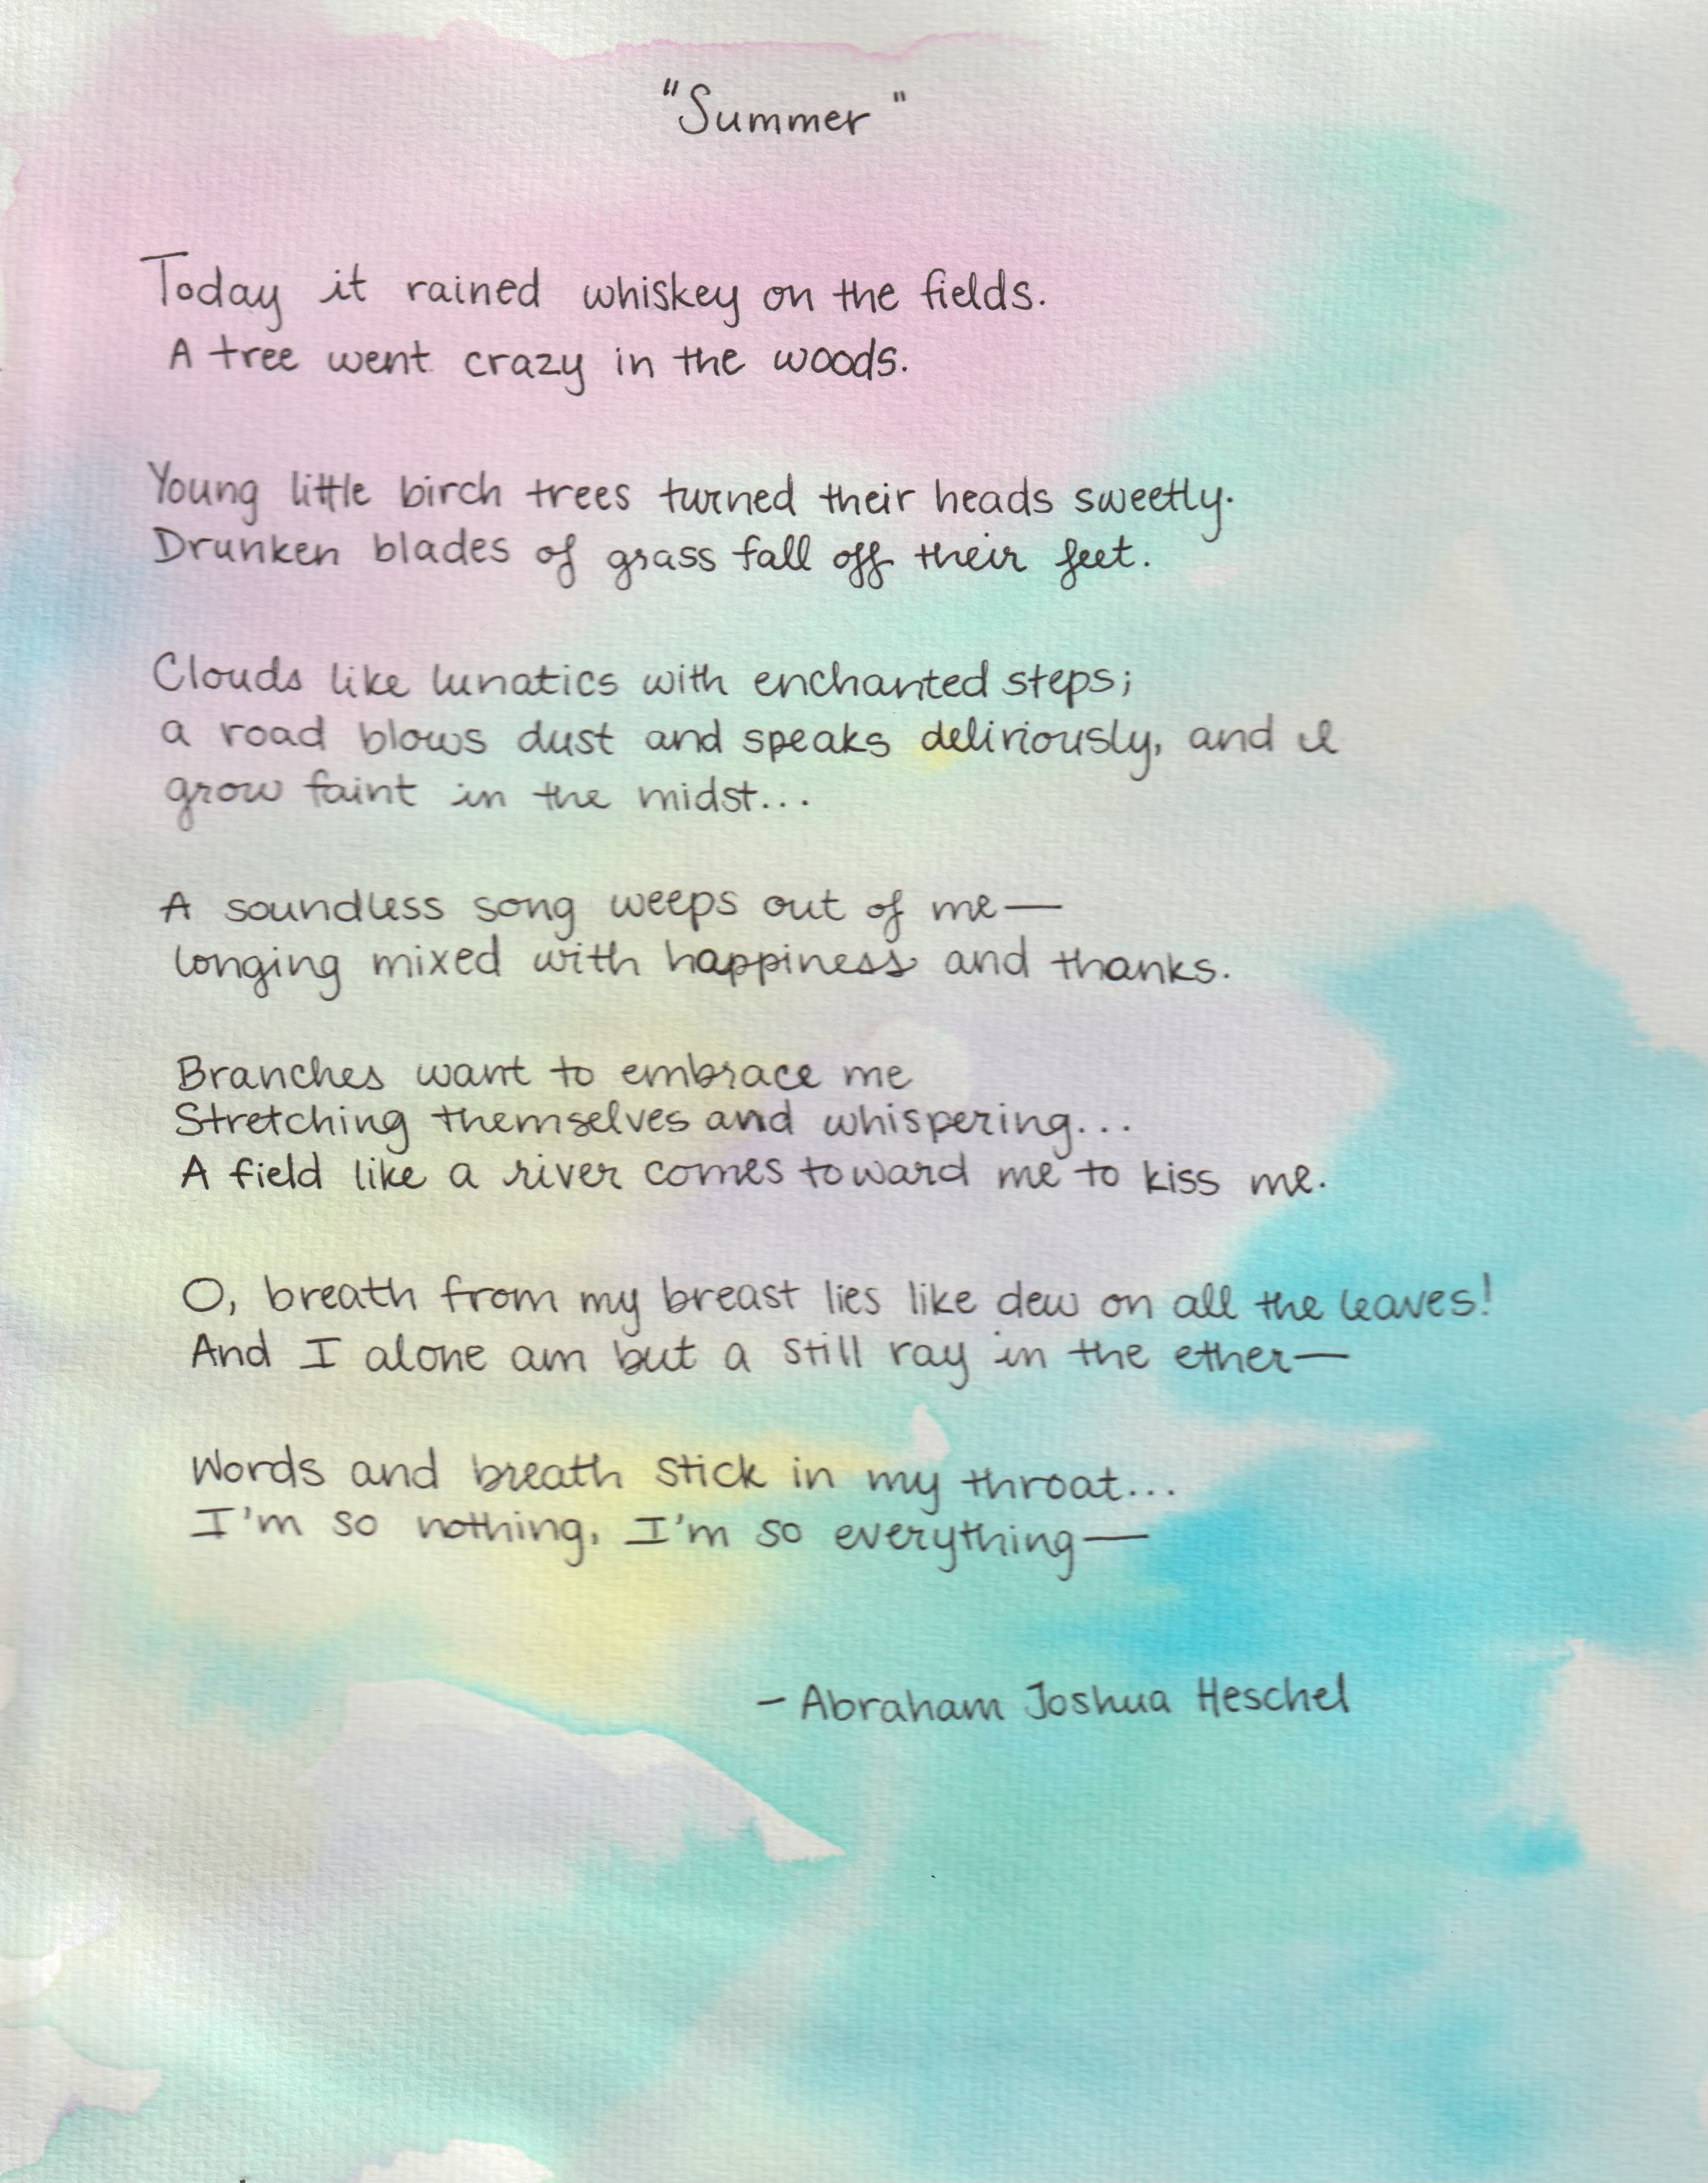 "Summer"
Today it rained whiskey on the fields.
A tree went crazy in the woods.
Young little birch trees turned their heads sweetly.
Drunken blades of grass fall off their feet.
Clouds like lunatics with enchanted steps;
a road blows dust and speaks deliriously, and I
grow faint in the midst...
A soundless song weeps out of me—
longing mixed with happiness and thanks.
Branches want to embrace me
Stretching themselves and whispering...
A field like a river comes toward me to kiss me.
O, breath from my breast lies like dew on all the leaves!
And I alone am but a still ray in the ether—
Words and breath stick in my throat...
I'm so nothing, I'm so everything—
- Abraham Joshua Heschel